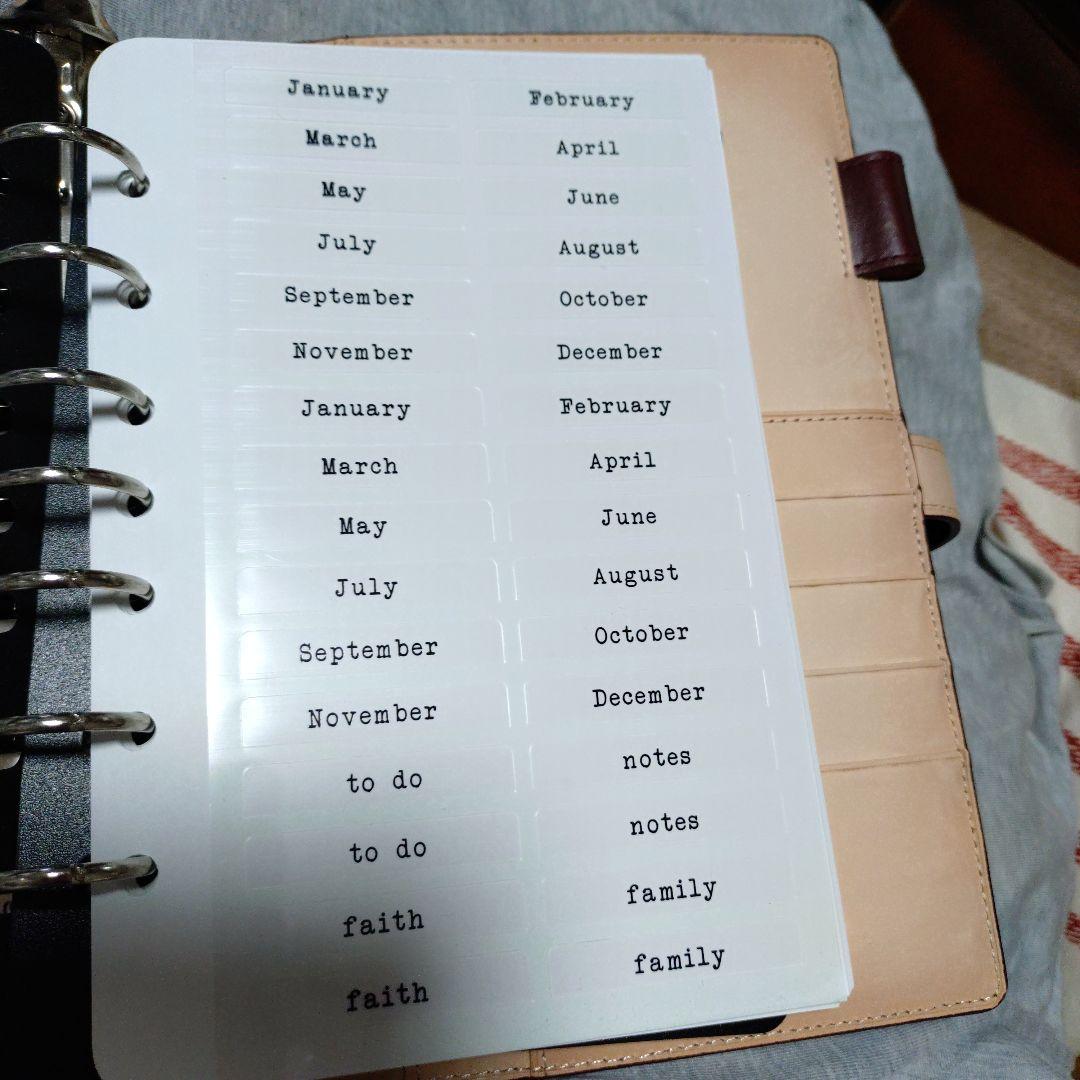 January February
March April
May June
July August
September October
November December
January February
March April
May June
July August
September October
November December
to do notes
to do notes
faith family
faith family